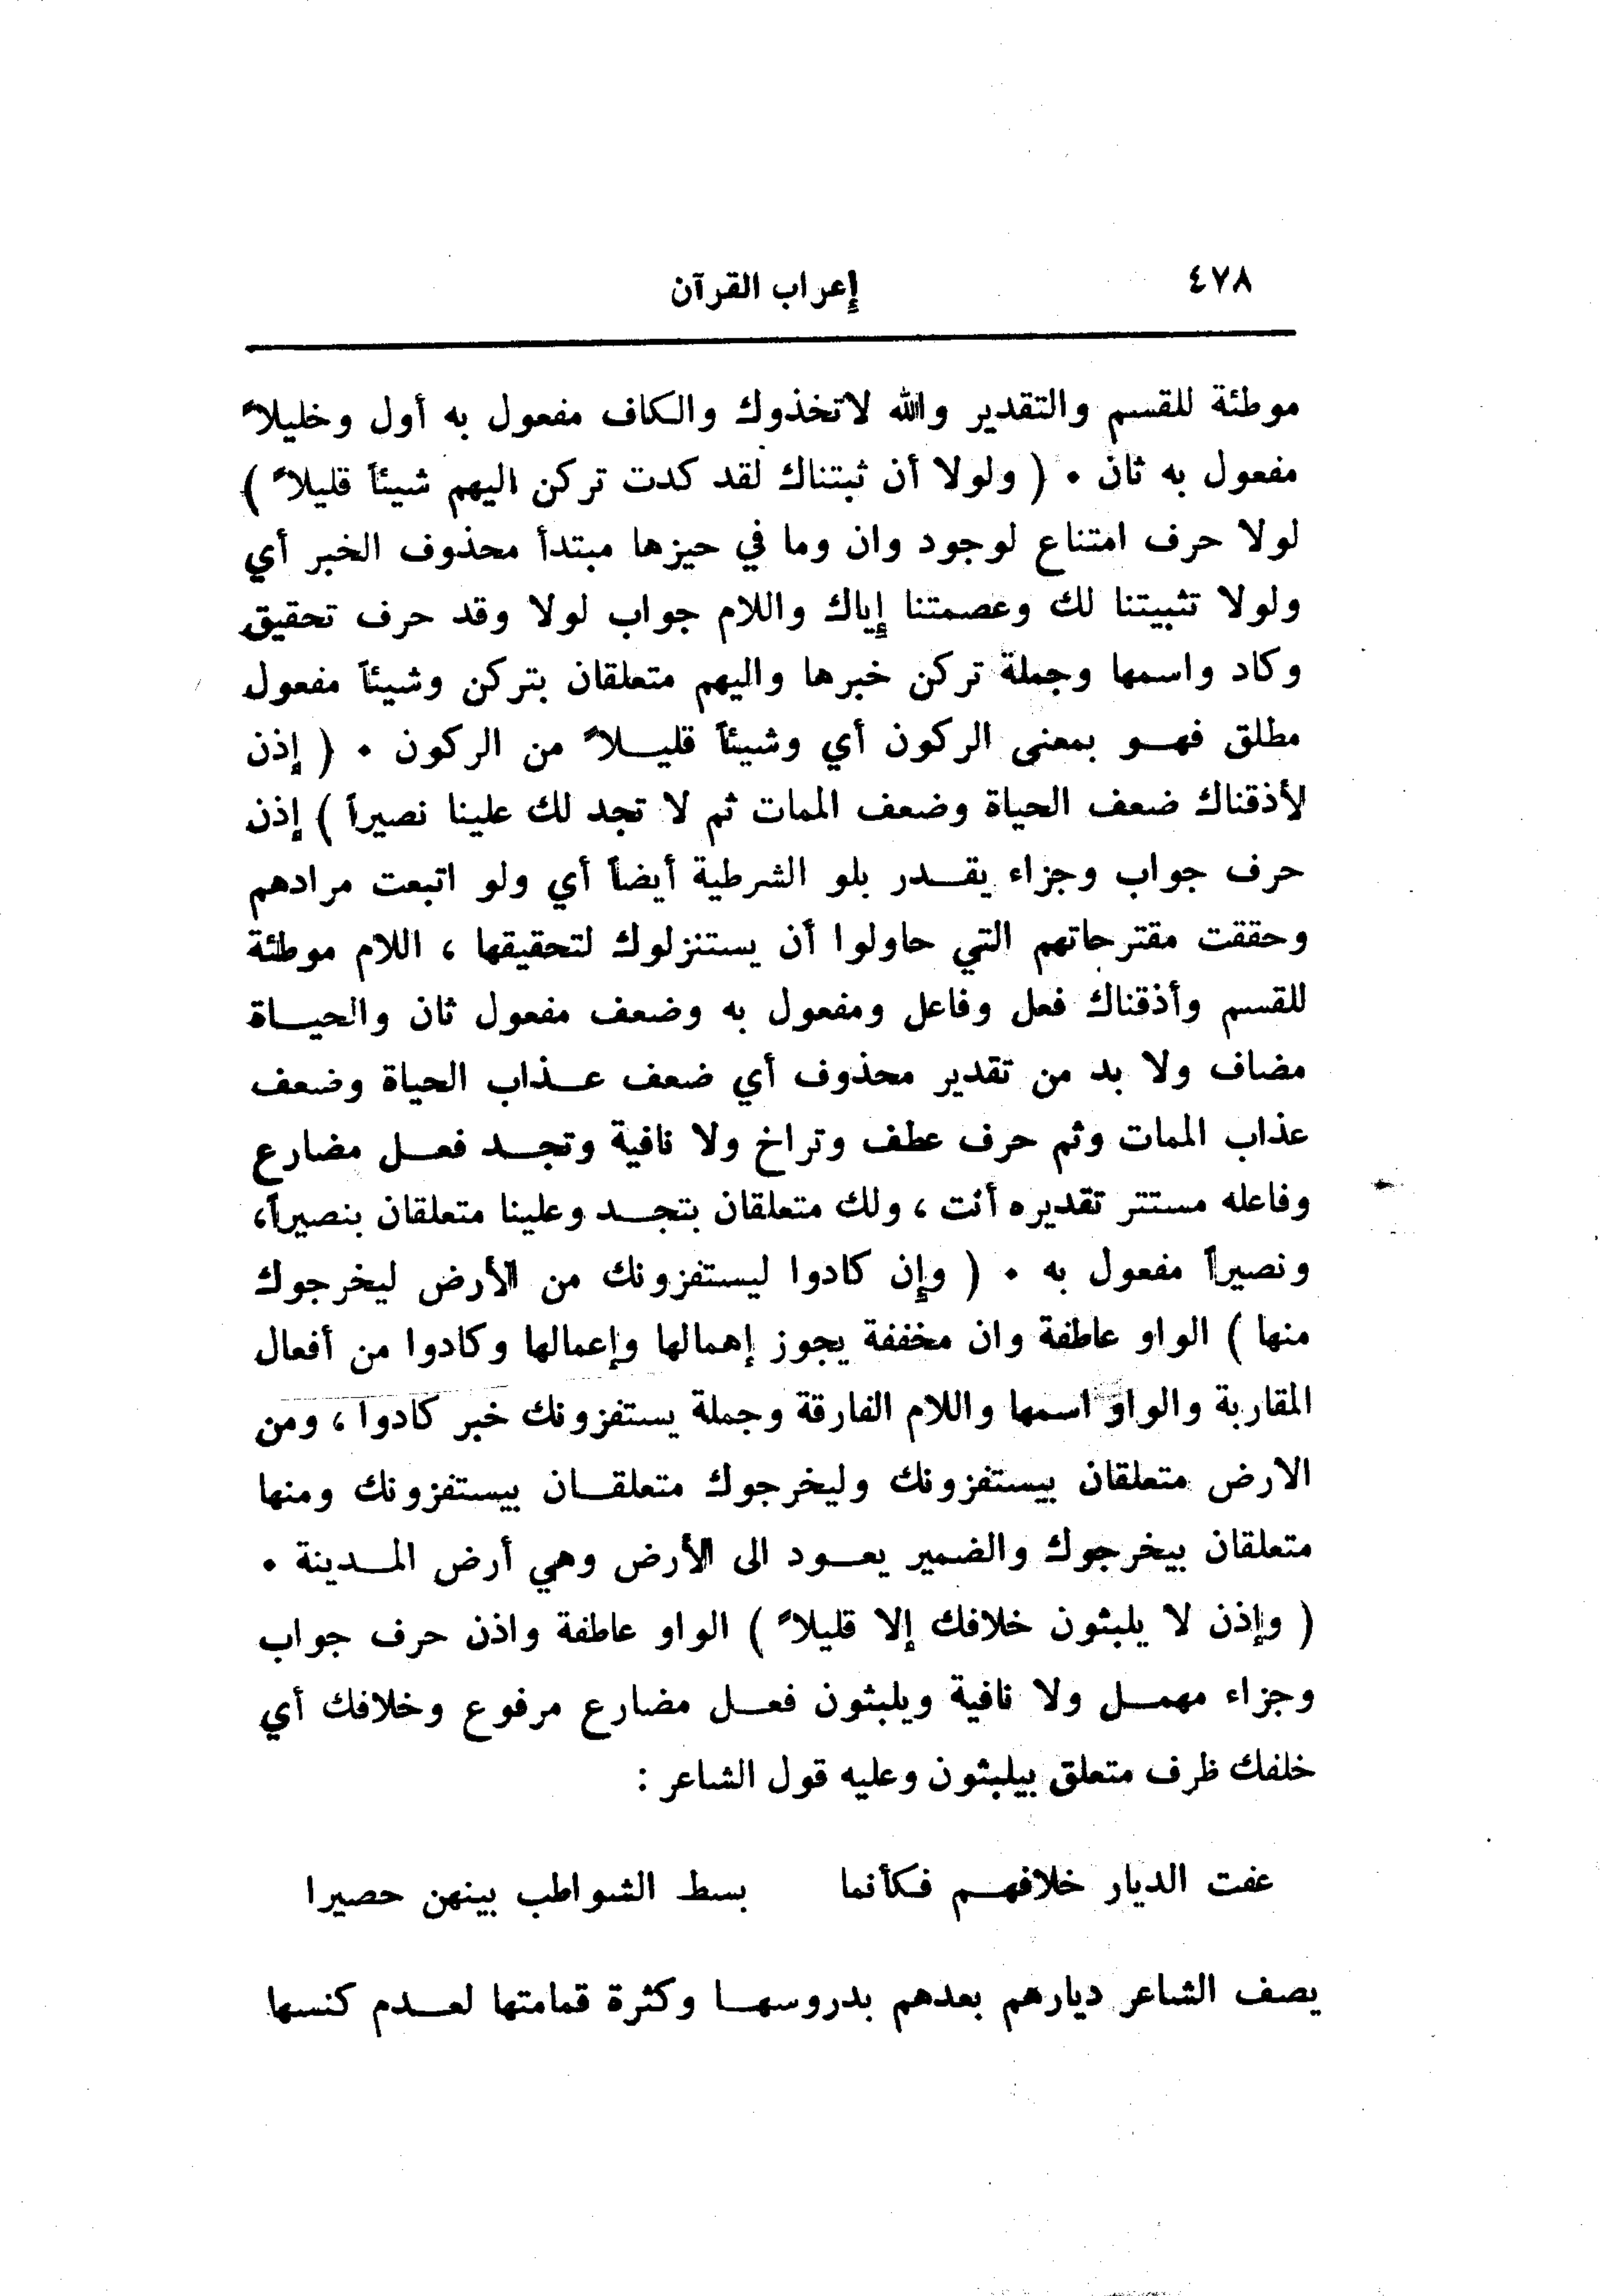 ٤٧٨
إعراب القرآن
موطئة للقسم والتقدير والله لاتخذوك والكاف مفعول به أول وخليلاً
مفعول به ثان ٠ ( ولولا أن ثبتناك لقد كدت تركن اليهم شيئاً قليلاً )
لولا حرف امتناع لوجود وان وما في حيزها مبتدأ محذوف الخبر أي
ولولا تثبيتنا لك وعصمتنا إياك واللام جواب لولا وقد حرف تحقيق
وكاد واسمها وجملة تركن خبرها واليهم متعلقان بتركن وشيئاً مفعول
مطلق فهو بمعنى الركون أي وشيئاً قليلاً من الركون ٠ ( إذن
لأذقناك ضعف الحياة وضعف الممات ثم لا تجد لك علينا نصيراً ) إذن
حرف جواب وجزاء يقدر بلو الشرطية أيضاً أي ولو اتبعت مرادهم
وحققت مقترحاتهم التي حاولوا أن يستنزلوك لتحقيقها ، اللام موطئة
للقسم وأذقناك فعل وفاعل ومفعول به وضعف مفعول ثان والحياة
مضاف ولا بد من تقدير محذوف أي ضعف عذاب الحياة وضعف
عذاب الممات وثم حرف عطف وتراخ ولا نافية وتجد فعل مضارع
وفاعله مستتر تقديره أنت ، ولك متعلقان بتجد وعلينا متعلقان بنصيراً،
ونصيراً مفعول به ٠ ( وإن كادوا ليستفزونك من الأرض ليخرجوك
منها ) الواو عاطفة وان مخففة يجوز إهمالها وإعمالها وكادوا من أفعال
المقاربة والواو اسمها واللام الفارقة وجملة يستفزونك خبر كادوا ، ومن
الارض متعلقان بيستفزونك وليخرجوك متعلقان بيستفزونك ومنها
متعلقان بيخرجوك والضمير يعود الى الأرض وهي أرض المدينة ٠
( وإذن لا يلبثون خلافك إلا قليلاً ) الواو عاطفة واذن حرف جواب
وجزاء مهمل ولا نافية ويلبثون فعل مضارع مرفوع وخلافك أي
خلفك ظرف متعلق بيلبثون وعليه قول الشاعر :
عفت الديار خلافهم فكأنما بسط الشواطب بينهن حصيرا
يصف الشاعر ديارهم بعدهم بدروسها وكثرة قمامتها لعدم كنسها